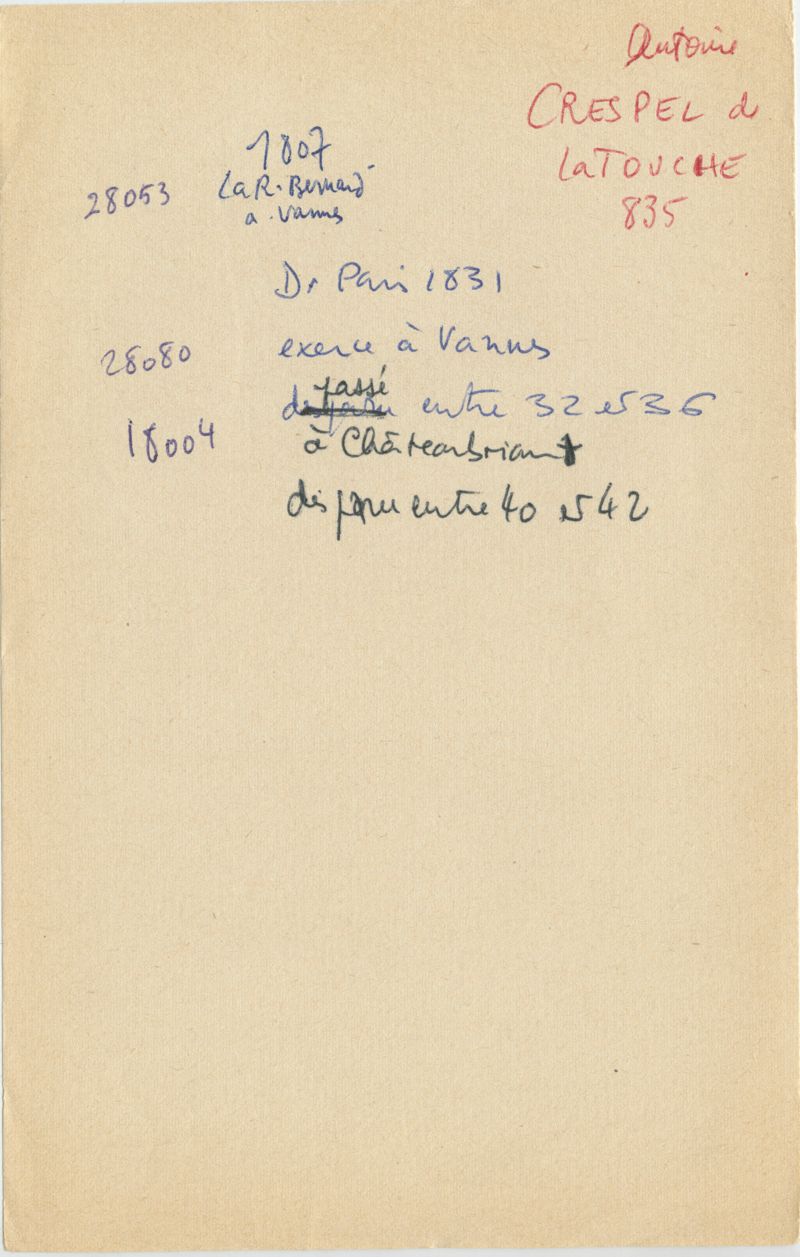 Antoine
CRESPEL de
LaTOUCHE
835
1807
28053 LaR. Bernard
a Vannes
Dr Paris 1831
28080 exerce à Vannes
passé
disparu entre 32 et 36
18004 à Châteaubriant
disparu entre 40 et 42